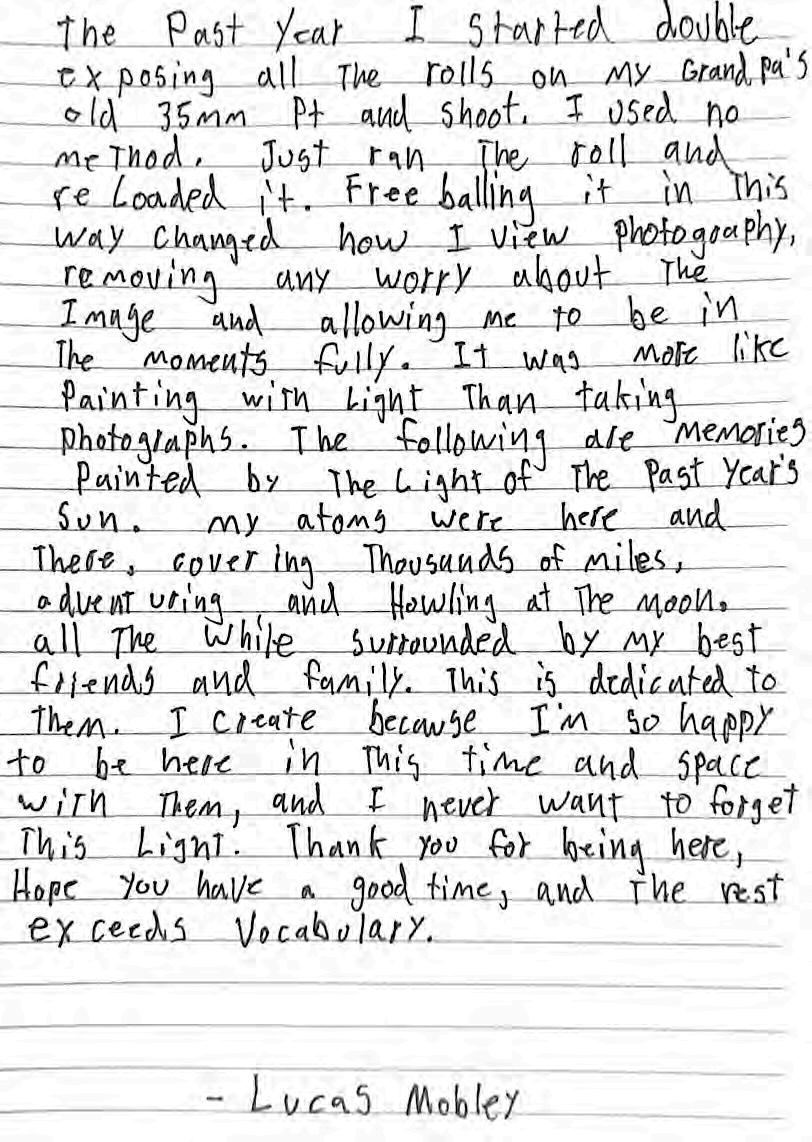 The Past Year I Started double
exposing all The rolls on my Grandpa's
old 35mm Pt and shoot. I used no
meThod. Just ran The roll and
reLoaded it. Free balling it in This
way changed how I view photography,
removing any worry about The
Image and allowing me to be in
The moments fully. It was more like
Painting wiTh Light Than taking
photographs. The following are memories
Painted by The Light of The Past Year's
Sun. my atoms were here and
There, covering Thousands of miles,
adventuring and Howling at The moon.
all The while surrounded by my best
friends and family. This is dedicated to
Them. I create because I'm so happy
to be here in This time and space
wiTh Them, and I never want to forget
This Light. Thank you for being here,
Hope you have a good time, and The rest
exceeds Vocabulary.
- Lucas Mobley